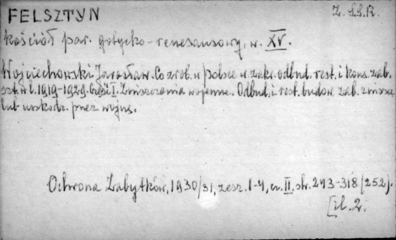 FELSZTYN
Z.S.S.R.
Kościół par. gotycko-renesansowy, w. XV.
Wojciechowski Jarosław. Co zrob. w Polsce w zakr. odbud. rest. i kons. zab.
szt. w l. 1919-1929. Część I. Zniszczenia wojenne. Odbud. i rest. budow. zab. zniszcz.
lub uszkodz. przez wojnę.
Ochrona Zabytków, 1930/31, zesz. 1-4, cz. II, str. 243-318 (252).
[il. 2.